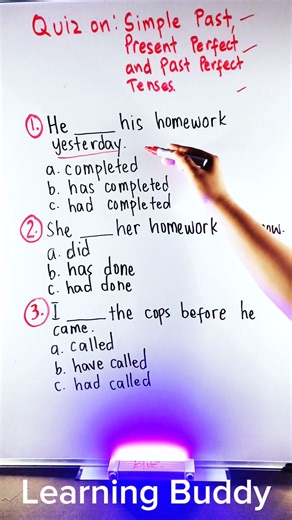 Quiz on: Simple Past,
Present Perfect
and Past Perfect
Tenses.
1. He ____ his homework
yesterday.
a. completed
b. has completed
c. had completed
2. She ____ her homework
a. did
b. has done
c. had done
3. I ____ the cops before he
came.
a. called
b. have called
c. had called
Learning Buddy